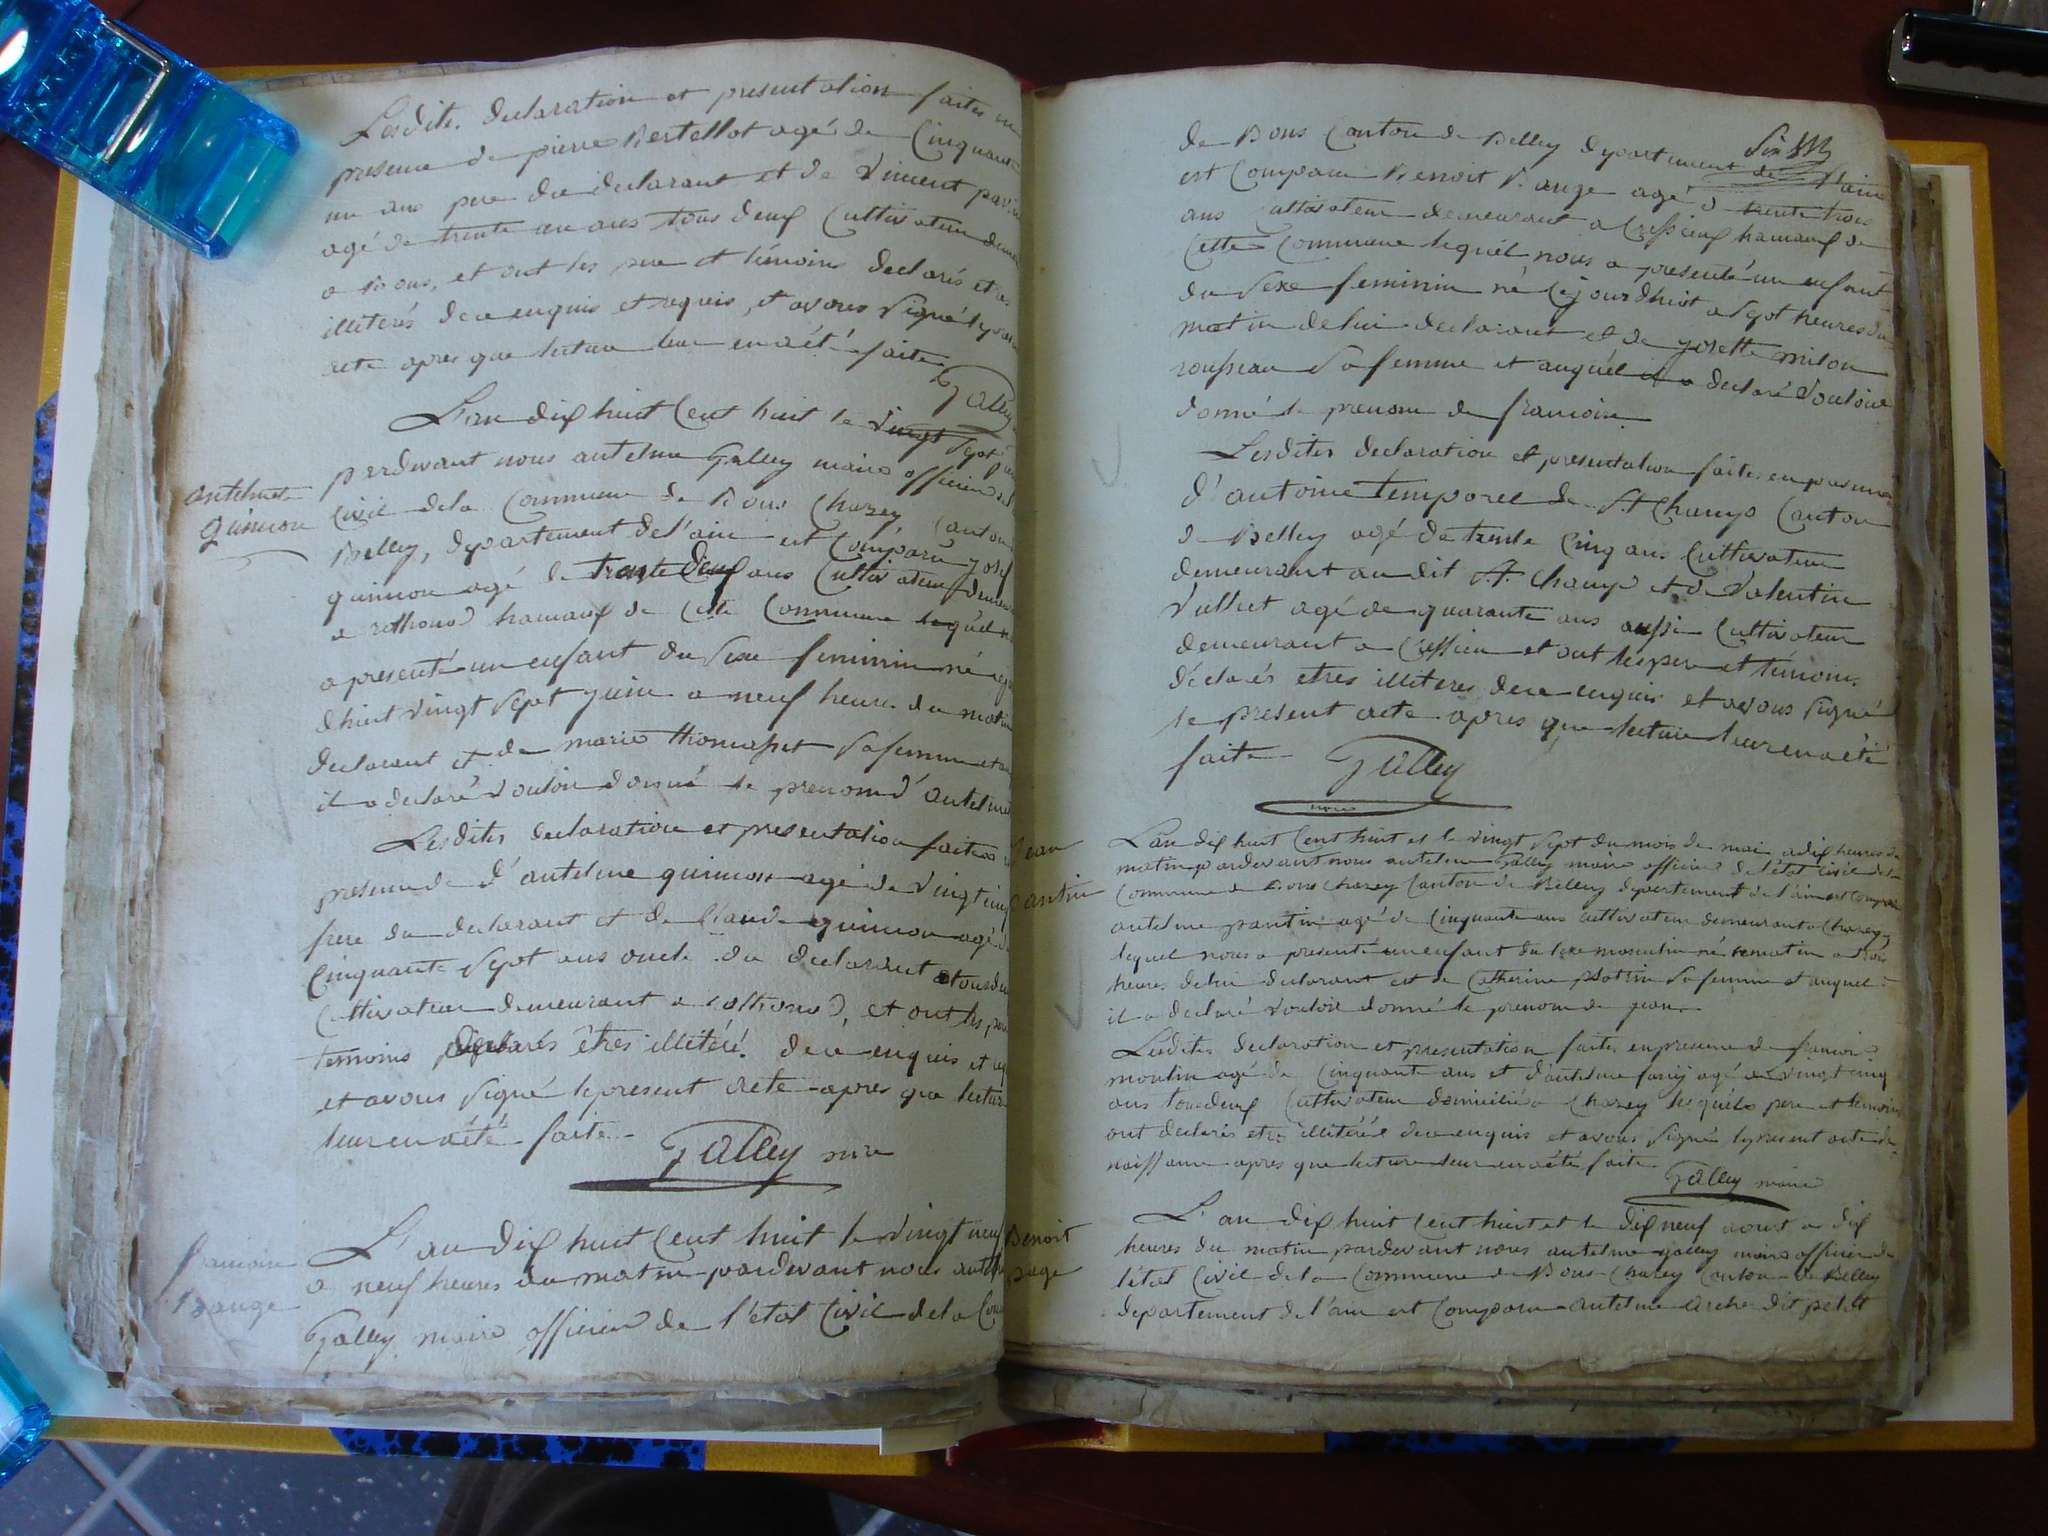 Lesdites declaration et presentation faites en
presence de pierre Bertellot agé de Cinquante
un ans pere du declarant et de Vincent
agé de trente un ans tous deux Cultivateur
a Bons, et ont les pere et témoins declarés etres
illiterés de ce enquis et requis, et avons Signé le present
acte apres que lecture leur en a été faite
Galley
L'an dix huit Cent huit le vingt Sept juin
pardevant nous antelme Galley maire officier de l'état
Civil de la Commune de Bons Chazey, Canton
Belley, departement de l'ain est Comparu
quinson agé de trente deux ans Cultivateur
a rothonod hamaux de Cette Commune lequel
a presenté un enfant du Sexe feminin né
dhuit vingt Sept juin a neuf heures du matin
declarant et de marie thomasset Sa femme
il a declaré vouloir donné le prenom d'antelme
antelme
quinson
Lesdites declaration et presentation faites
presence de d'antelme quinson agé de vingt cinq
frere du declarant et de Claude quinson agé
Cinquante Sept ans oncle du declarant
Cultivateur demeurant a rothonod, et ont les
temoins declarés êtres illiteré de ce enquis et
et avons Signé le present acte apres que lecture
leur en a été faite
Galley maire
L'an dix huit Cent huit le vingt neuf
a neuf heures du matin pardevant nous antelme
Galley maire officier de l'état Civil de la
francoise
Bauge
de Bons Canton de Belley departement de l'ain
est Comparu Benoit Bauge agé de trente trois
ans Cultivateur demeurant a Cressieux hamaux de
Cette Commune lequel nous a presenté un enfant
du Sexe feminin né ce jourdhiot a Sept heures du
matin de lui declarant et de josette milon
rousseau Sa femme et auquel il a declaré vouloir
donné le prenom de francoise
Lesdites declaration et presentation faites en presence
d'antoine Temporel de St Champ Canton
de Belley agé de trente Cinq ans Cultivateur
demeurant au dit St Champ et de valentin
agé de quarante ans aussi Cultivateur
demeurant a Cressieu et ont les pere et témoins
déclarés etres illiteres de ce enquis et avons Signé
le present acte apres que lecture leur en a été
faite Galley
maire
Jean
pantin
L'an dix huit Cent huit et le vingt Sept du mois de mai a dix heures du
matin pardevant nous antelme Galley maire officier de l'état Civil de la
Commune de Bons Chazey Canton de Belley departement de l'ain est Comparu
antelme pantin agé de Cinquante ans cultivateur demeurant a Chazey
lequel nous a presenté un enfant du Sexe masculin né ce matin a trois
heures de lui declarant et de Catherine Sa femme et auquel
il a declaré vouloir donné le prenom de jean
Lesdites declaration et presentation faites en presence de francois
moulin agé de Cinquante ans et d'antelme agé de vingt cinq
ans tous deux Cultivateur domicilié a Chazey lesquels pere et temoins
ont declarés etre illiteré de ce enquis et avons Signé le present acte de
naissance apres que lecture leur en a été faite
Galley maire
Benoit
page
L'an dix huit Cent huit et le dix neuf aout a dix
heures du matin pardevant nous antelme galley maire officier de
l'état Civil de la Commune de Bons Chazey Canton de Belley
departement de l'ain est Comparu antelme dit petit